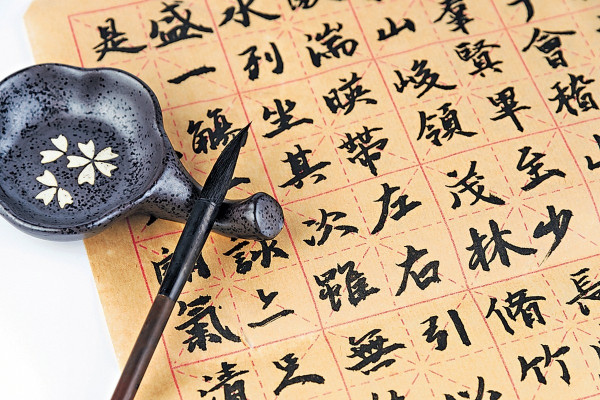 會稽
羣賢畢至少長
山峻領茂林脩竹
湍暎帶左右引
水列坐其次雖無
盛一觴一詠足
是氣清